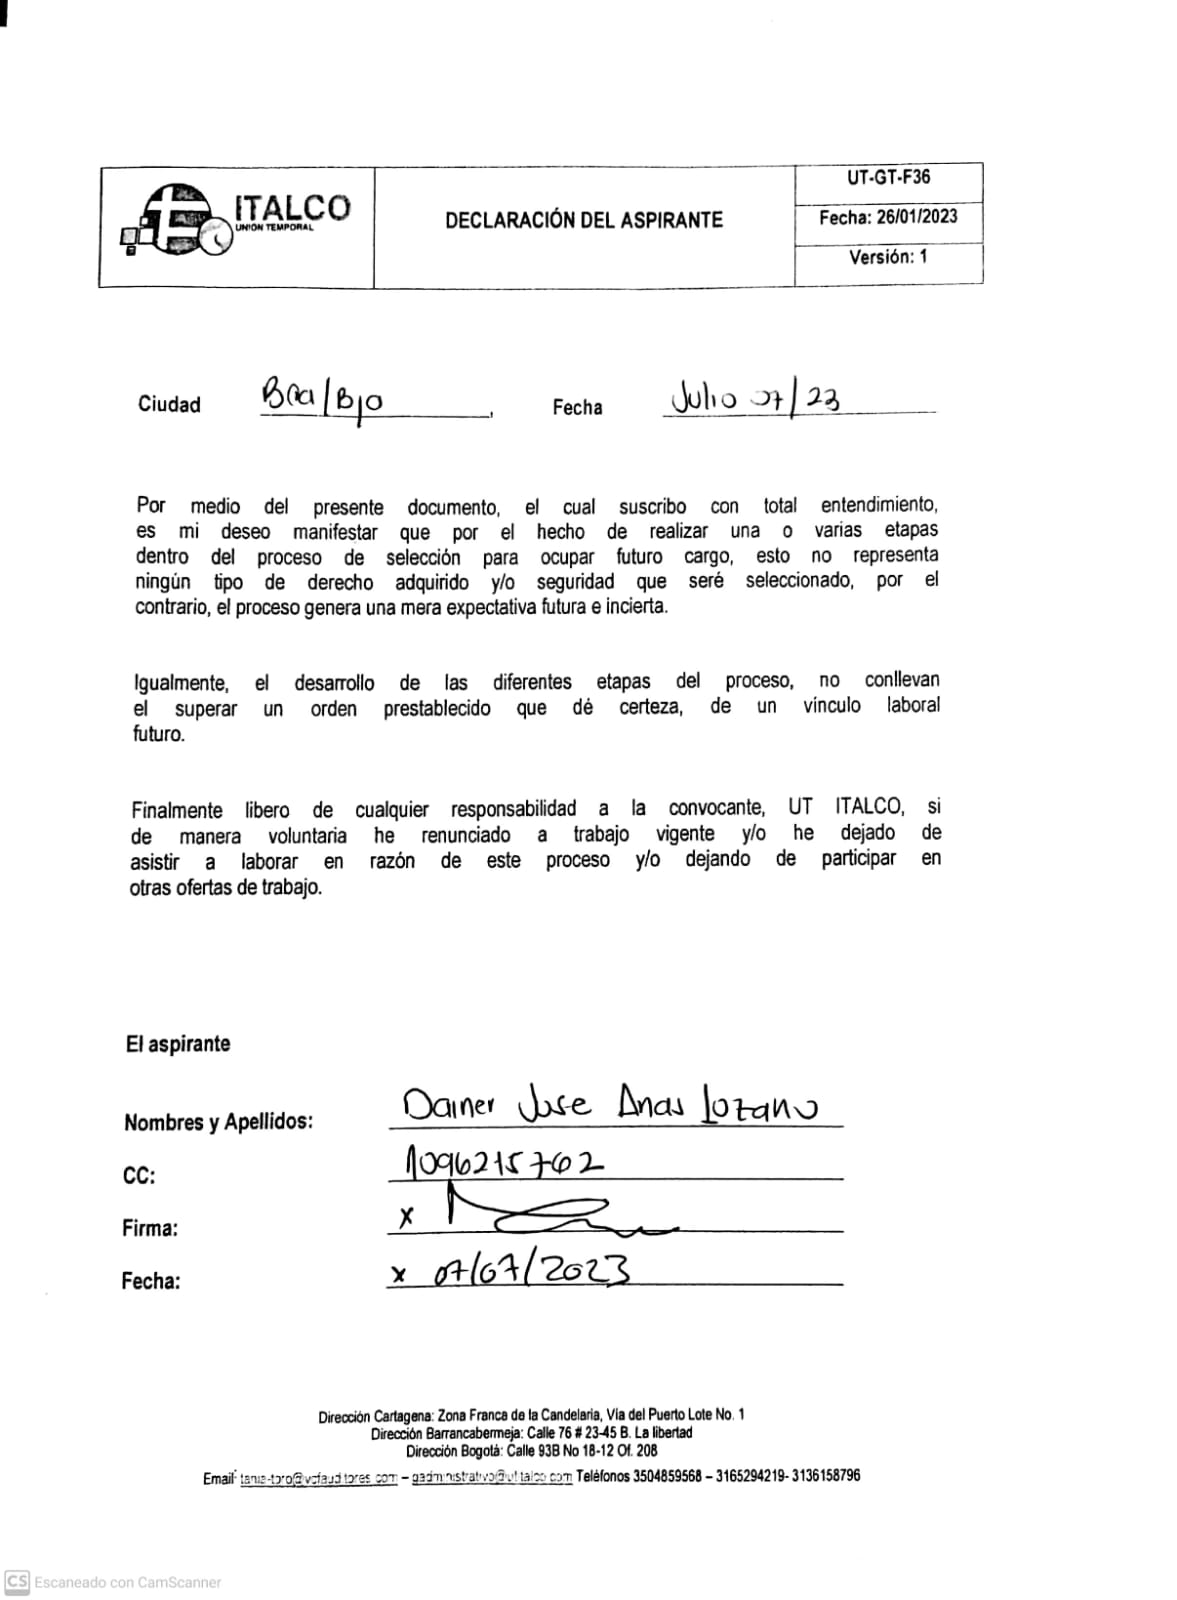 ITALCO
UNION TEMPORAL
DECLARACIÓN DEL ASPIRANTE
UT-GT-F36
Fecha: 26/01/2023
Versión: 1
Ciudad Bca/Bjo , Fecha Julio 07/23
Por medio del presente documento, el cual suscribo con total entendimiento,
es mi deseo manifestar que por el hecho de realizar una o varias etapas
dentro del proceso de selección para ocupar futuro cargo, esto no representa
ningún tipo de derecho adquirido y/o seguridad que seré seleccionado, por el
contrario, el proceso genera una mera expectativa futura e incierta.
Igualmente, el desarrollo de las diferentes etapas del proceso, no conllevan
el superar un orden prestablecido que dé certeza, de un vínculo laboral
futuro.
Finalmente libero de cualquier responsabilidad a la convocante, UT ITALCO, si
de manera voluntaria he renunciado a trabajo vigente y/o he dejado de
asistir a laborar en razón de este proceso y/o dejando de participar en
otras ofertas de trabajo.
El aspirante
Nombres y Apellidos: Dainer Jose Arias Lozano
CC: 1096215762
Firma: x
Fecha: x 07/07/2023
Dirección Cartagena: Zona Franca de la Candelaria, Vía del Puerto Lote No. 1
Dirección Barrancabermeja: Calle 76 # 23-45 B. La libertad
Dirección Bogotá: Calle 93B No 18-12 Of. 208
Email: – Teléfonos 3504859568 – 3165294219- 3136158796
CS Escaneado con CamScanner